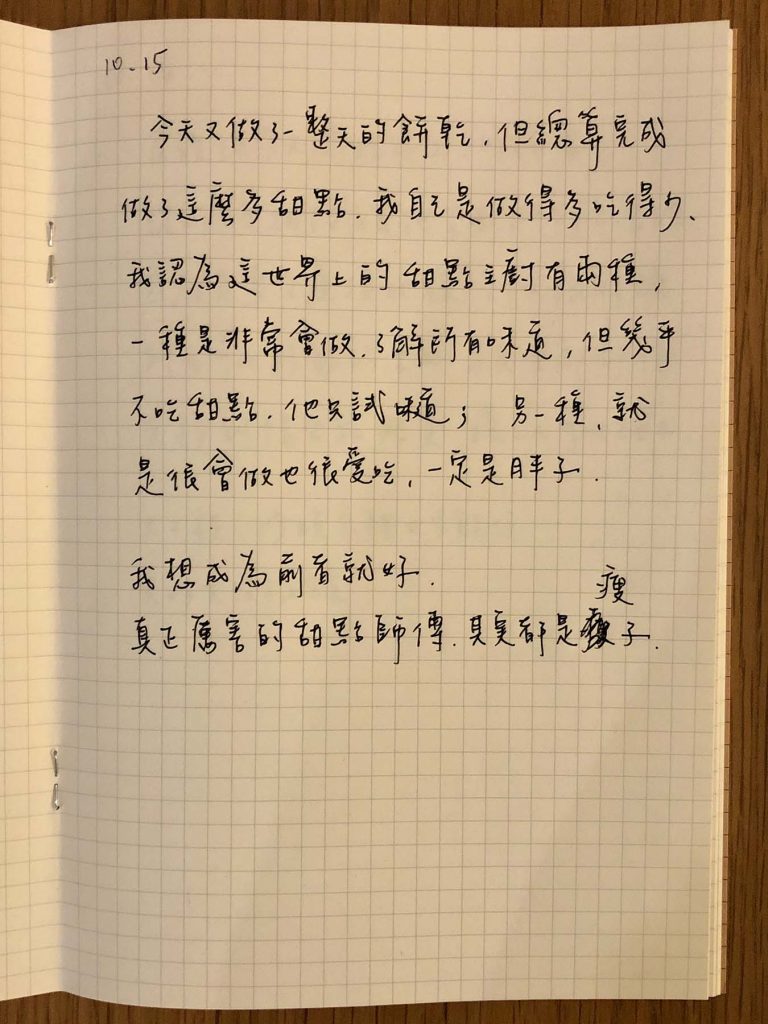 10.15
今天又做了一整天的餅乾，但總算完成
做了這麼多甜點，我自己是做得多吃得少、
我認為這世界上的甜點主廚有兩種，
一種是非常會做，了解所有味道，但幾乎
不吃甜點，他只試味道；另一種，就
是很會做也很愛吃，一定是胖子．
我想成為前者就好．
真正厲害的甜點師傅，其實都是瘦子．